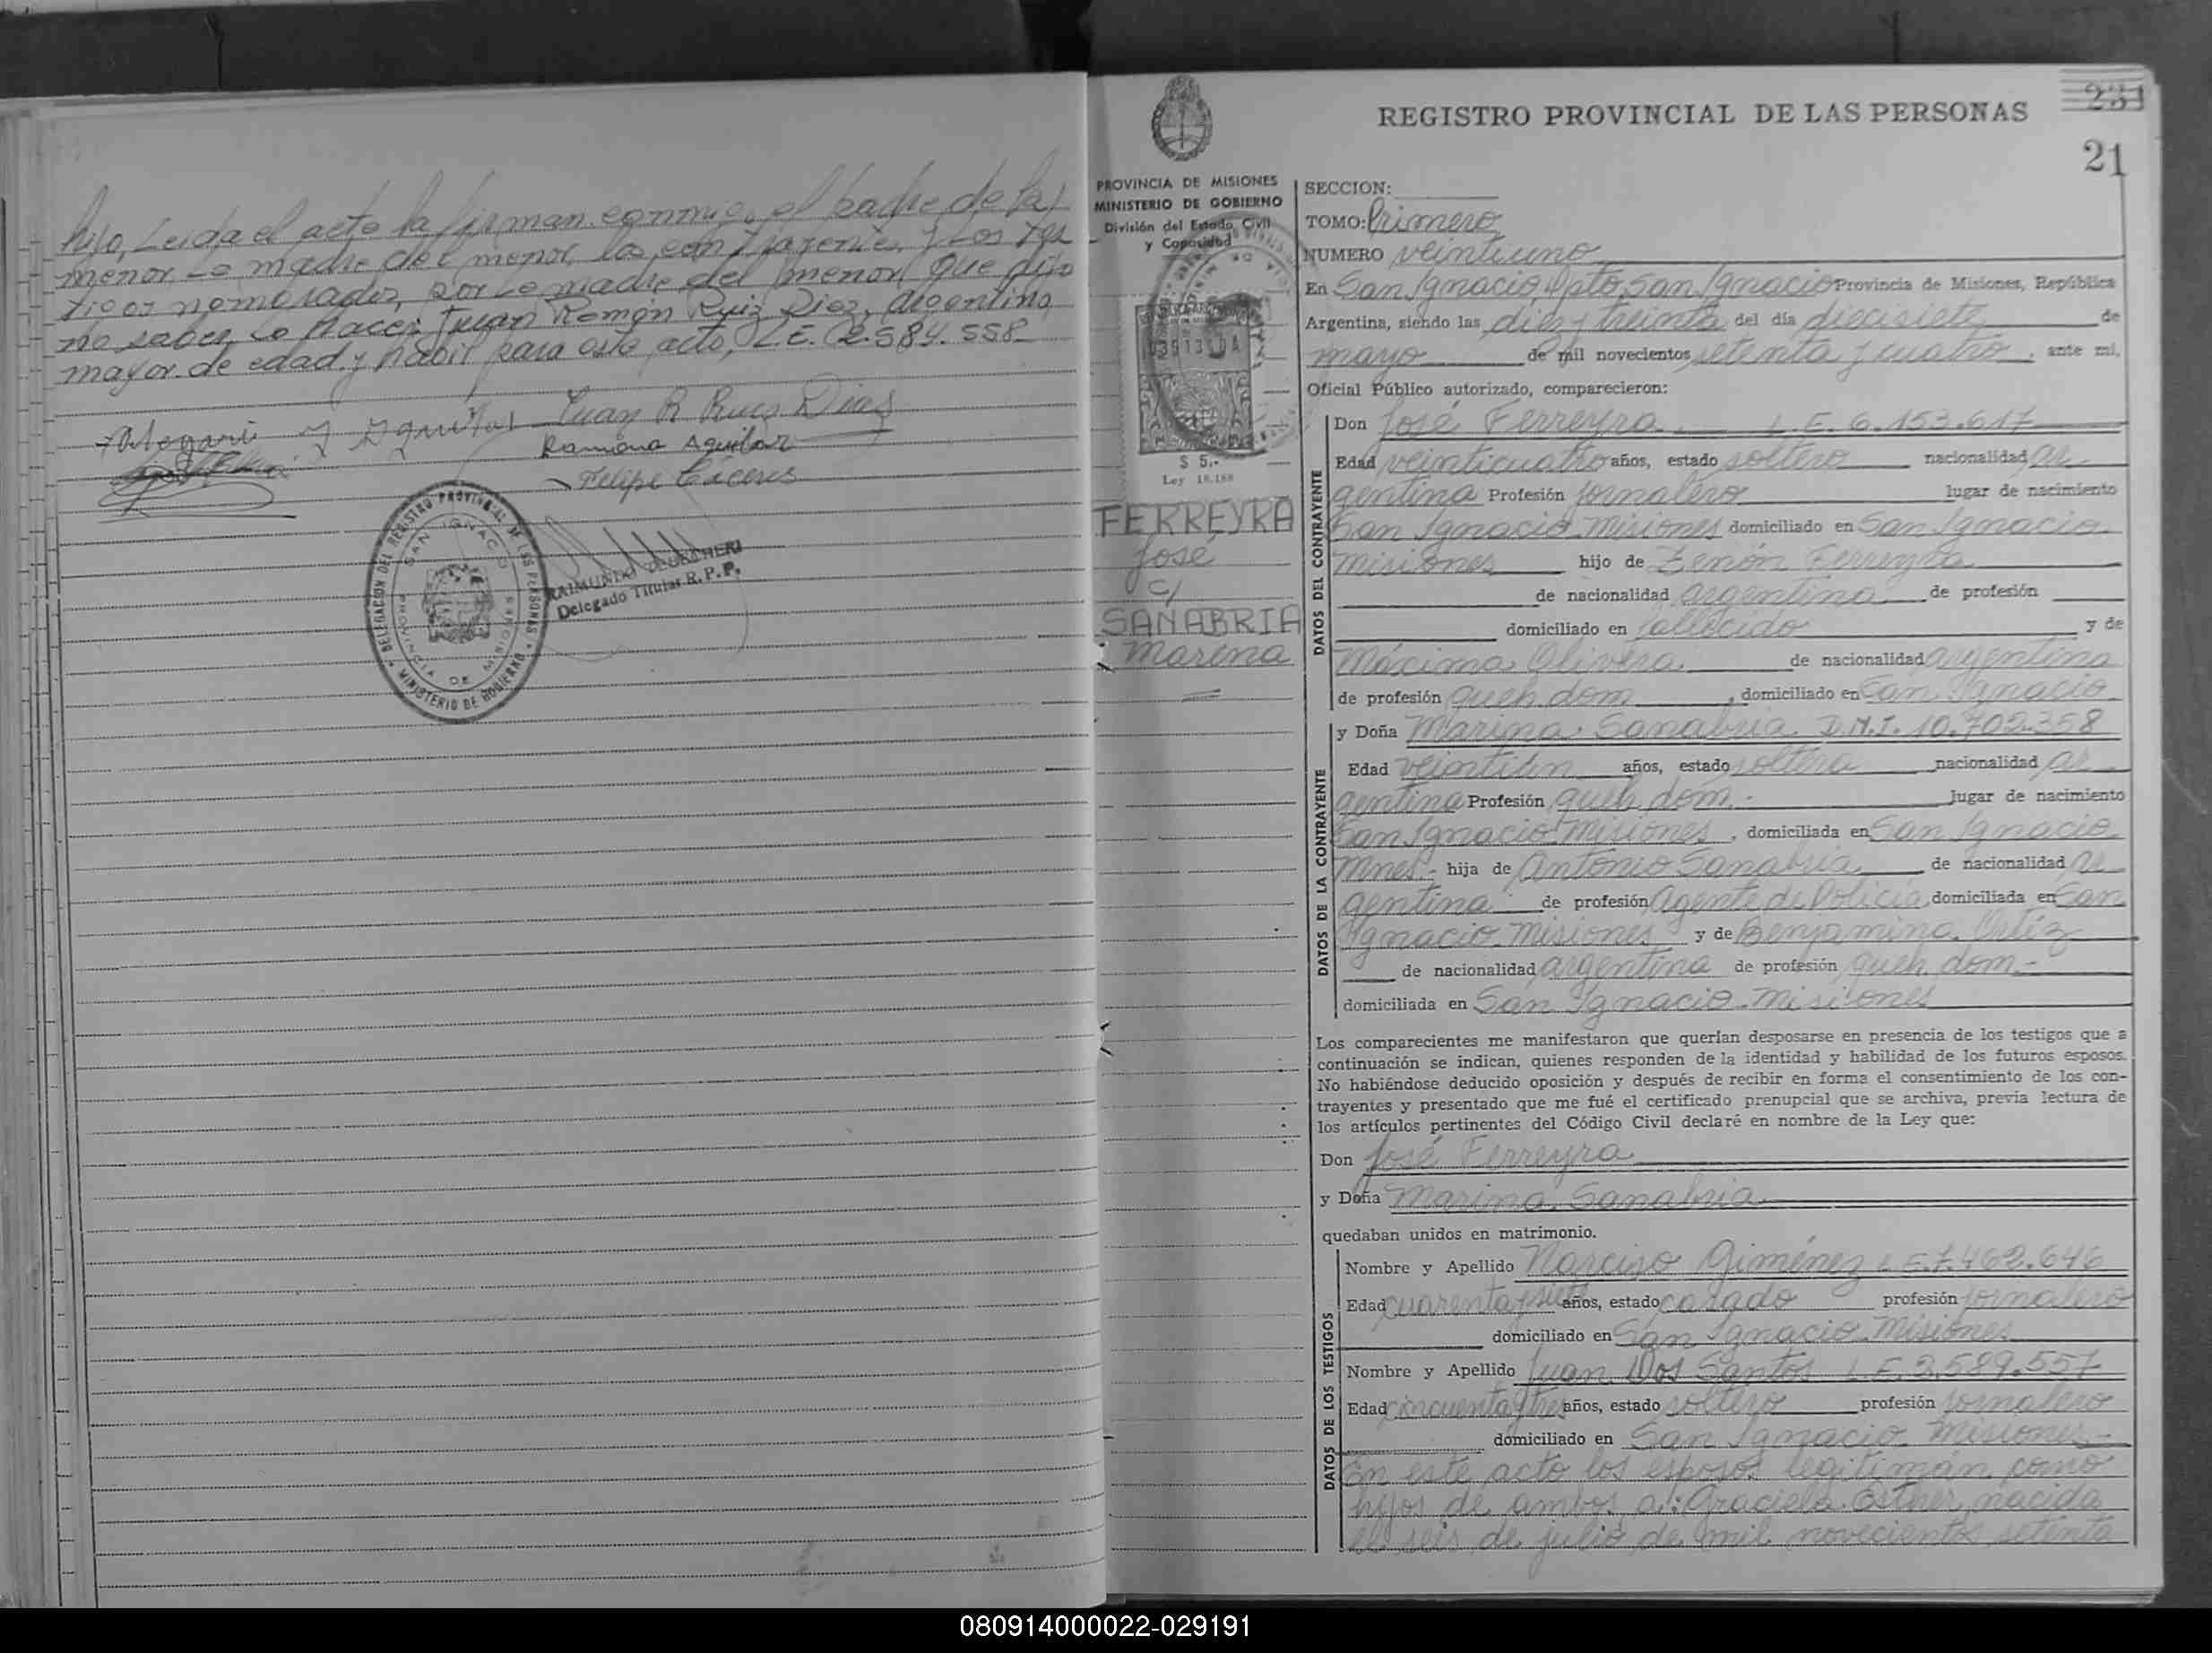 hijo, Leida el acto la firman conmigo el padre de la
menor - la madre del menor los contrayentes y Los tes
tigos nombrados, por la madre del menor que dijo
no saber lo hacer Juan Ramón Ruiz Diaz, argentino
mayor de edad y habil para este acto, L.E. 2.584.558
Juan R Ruis Dias
Ramona Aguilar
Felipe Caceres
DELEGACION DEL REGISTRO PROVINCIAL DE LAS PERSONAS
SAN IGNACIO
PROVINCIA DE MISIONES
MINISTERIO DE GOBIERNO
RAIMUNDO
Delegado Titular R.P.P.
231
REGISTRO PROVINCIAL DE LAS PERSONAS
21
PROVINCIA DE MISIONES
MINISTERIO DE GOBIERNO
División del Estado Civil
y Capacidad
$ 5.-
Ley 18.188
FERREYRA
José
c/
SANABRIA
Marina
SECCION:
TOMO: Primero
NUMERO veintiuno
En San Ignacio, Dpto. San Ignacio Provincia de Misiones, República
Argentina, siendo las diez y treinta del día diecisiete de
mayo de mil novecientos setenta y cuatro, ante mi,
Oficial Público autorizado, comparecieron:
DATOS DEL CONTRAYENTE
Don José Ferreyra L.E. 6.153.617
Edad veinticuatro años, estado soltero nacionalidad ar
gentina Profesión jornalero lugar de nacimiento
San Ignacio Misiones domiciliado en San Ignacio
Misiones hijo de Zenón Ferreyra
de nacionalidad argentina de profesión
domiciliado en fallecido y de
Máxima Olivera de nacionalidad argentina
de profesión queh dom, domiciliado en San Ignacio
DATOS DE LA CONTRAYENTE
y Doña Marina Sanabria D.N.I. 10.702.358
Edad veintiún años, estado soltera nacionalidad ar
gentina Profesión queh dom.- lugar de nacimiento
San Ignacio Misiones, domiciliada en San Ignacio
Mnes.- hija de Antonio Sanabria de nacionalidad ar
gentina de profesión Agente de Policia, domiciliada en San
Ignacio Misiones y de Benjamina Ortiz
de nacionalidad argentina de profesión queh dom.-
domiciliada en San Ignacio Misiones
Los comparecientes me manifestaron que querían desposarse en presencia de los testigos que a
continuación se indican, quienes responden de la identidad y habilidad de los futuros esposos.
No habiéndose deducido oposición y después de recibir en forma el consentimiento de los con-
trayentes y presentado que me fué el certificado prenupcial que se archiva, previa lectura de
los artículos pertinentes del Código Civil declaré en nombre de la Ley que:
Don José Ferreyra
y Doña Marina Sanabria
quedaban unidos en matrimonio.
DATOS DE LOS TESTIGOS
Nombre y Apellido Narciso Giménez L.E. 7.462.646
Edad cuarenta y siete años, estado casado profesión jornalero
domiciliado en San Ignacio Misiones
Nombre y Apellido Juan Dos Santos L.E. 3.589.557
Edad cincuenta y tres años, estado soltero profesión jornalero
domiciliado en San Ignacio Misiones.-
En este acto los esposos legitiman como
hijos de ambos a: Graciela Esther, nacida
el seis de julio de mil novecientos setenta
080914000022-029191